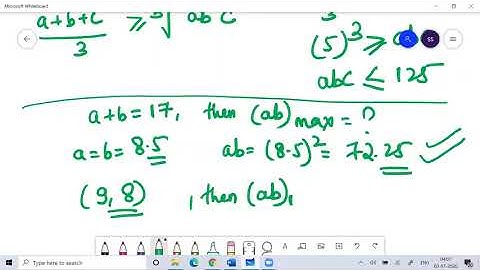 Microsoft Whiteboard
a+b+c / 3 ≥ ³√abc
(5)³ ≥
abc ≤ 125
a+b = 17, then (ab)max = ?
a=b= 8.5 ab= (8.5)² = 72.25
(9, 8) , then (ab),
Type here to search
ENG